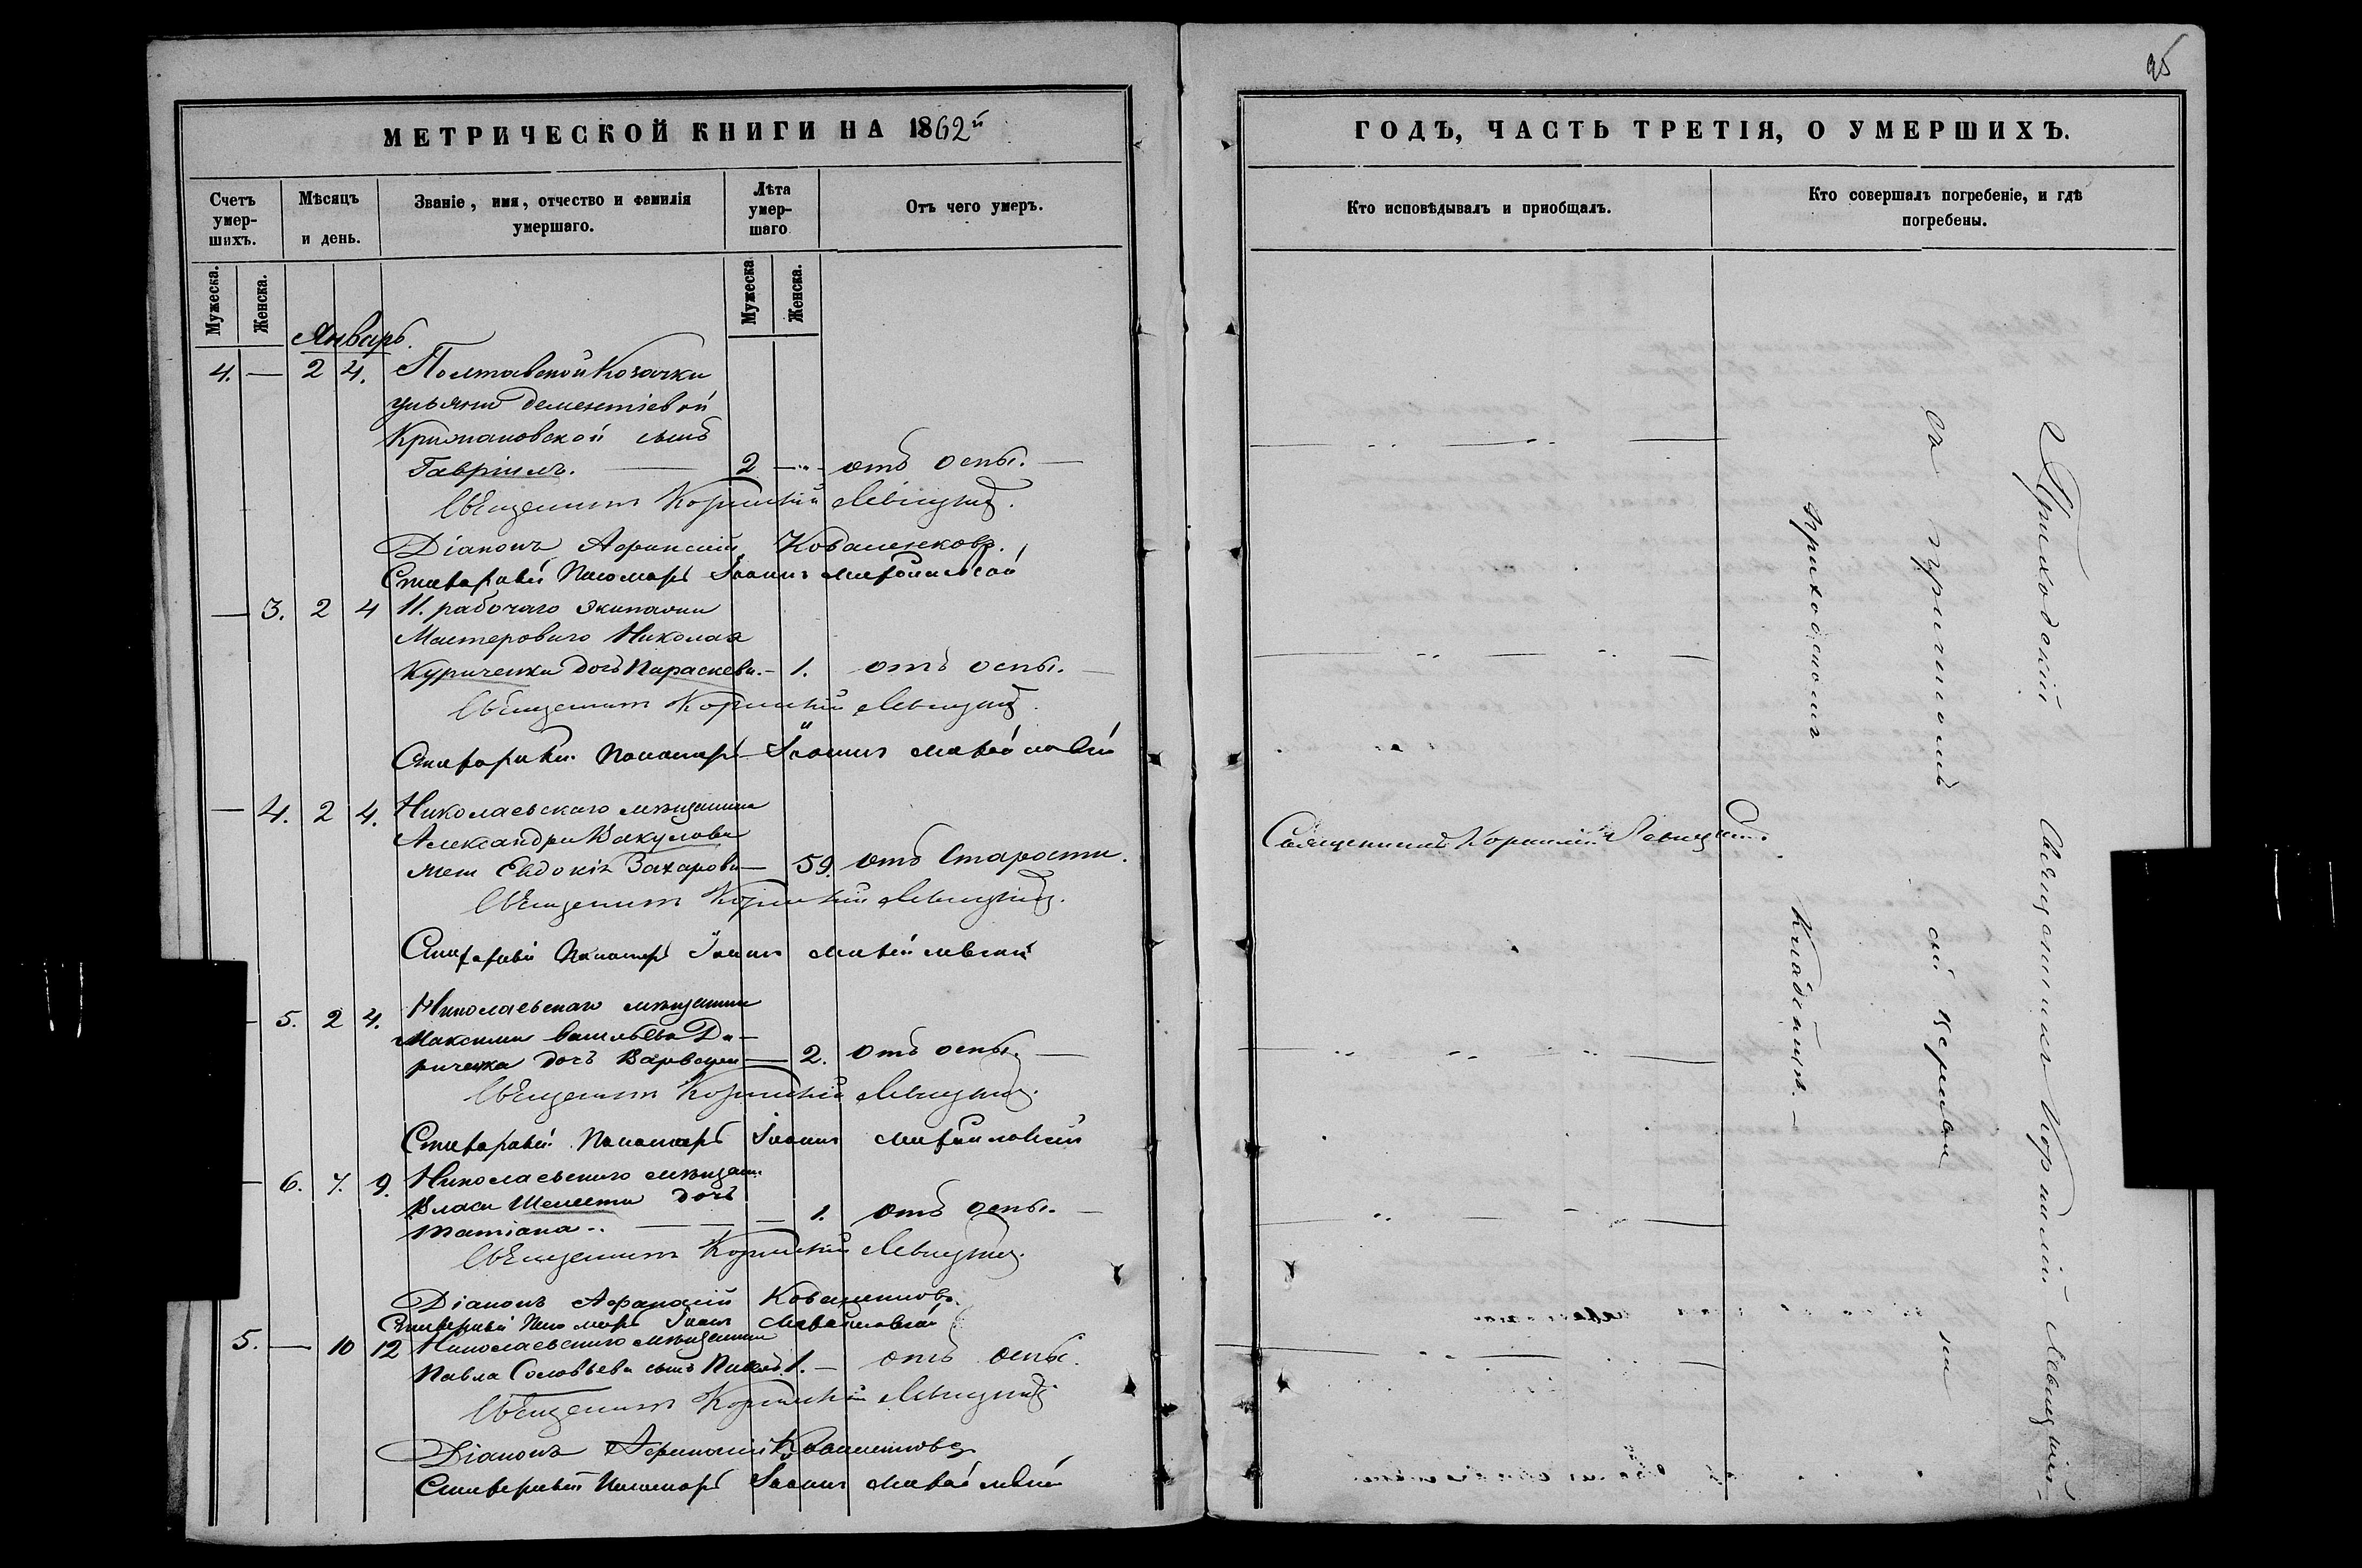 95
МЕТРИЧЕСКОЙ КНИГИ НА 1862й
Счетъ умер-шихъ.
Мѣсяцъ и день.
Званіе, имя, отчество и фамилія умершаго.
Лѣта умер-шаго
Отъ чего умеръ.
Мужеска.
Женска.
Мужеска
Женска.
Январь.
4. — 2 4. Полтавской Козачки
ульяны дементіевой
сынъ
Гавріилъ. — 2 — отъ оспы. —
Священникъ Корнилій Левицкій.
Діаконъ Афанасій Коваленковъ.
Пономарь Іоаннъ
— 3. 2 4 11. рабочаго экипажа
Мастероваго Николая
Куриченка дочь Параскева. — 1. отъ оспы. —
Священникъ Корнилій Левицкій.
Пономарь Іоаннъ
— 4. 2 4. Николаевскаго мѣщанина
Александра Вакулова
жена Евдокія Захарова — 59. отъ Старости.
Священникъ Корнилій Левицкій.
Пономарь Іоаннъ
— 5. 2 4. Николаевскаго мѣщанина
Максима Васильева Да-
риченка дочь Варвара — 2. отъ оспы. —
Священникъ Корнилій Левицкій.
Пономарь Іоаннъ
— 6. 7. 9. Николаевскаго мѣщан.
Власа Шелеста дочь
Татіана — 1. отъ оспы. —
Священникъ Корнилій Левицкій.
Діаконъ Афанасій Коваленковъ.
Пономарь Іоаннъ
5. — 10 12 Николаевскаго мѣщанина
Павла Соловьева сынъ Павелъ 1. — отъ оспы.
Священникъ Корнилій Левицкій
Діаконъ Афанасій Коваленковъ
Пономарь Іоаннъ
ГОДЪ, ЧАСТЬ ТРЕТІЯ, О УМЕРШИХЪ.
Кто исповѣдывалъ и приобщалъ.
Кто совершалъ погребеніе, и гдѣ погребены.
Священникъ Корнилій Левицкій.
Приходскій Священникъ Корнилій Левицкій
съ причтомъ на
приходскомъ Кладбищѣ. —